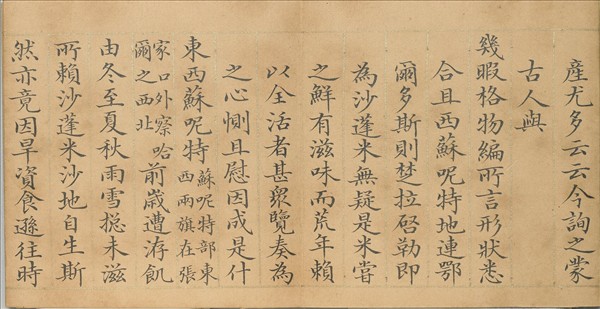 產尤多云云今詢之蒙
古人與
幾暇格物編所言形狀悉
合且西蘇呢特地連鄂
爾多斯則楚拉啓勒即
為沙蓬米無疑是米嘗
之鮮有滋味而荒年賴
以全活者甚眾覽奏為
之心惻且慰因成是什
東西蘇呢特蘇呢特部東西兩旗在張
家口外察哈爾之西北前歲遭洊飢
由冬至夏秋雨雪摠未滋
所賴沙蓬米沙地自生斯
然亦竟因旱資食遜往時